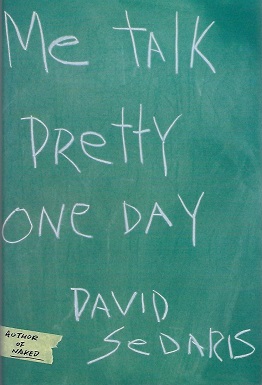 Me TALK
PReTTY
ONE DAY
DAVID
SeDARIS
AUTHOR
OF
NAKED